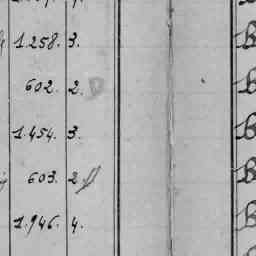 1.258. 3. B
602. 2. B
1.454. 3. B
603. 2. B
1.946. 4. B